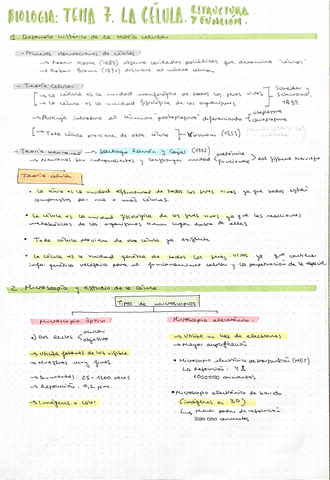 BIOLOGÍA: TEMA 7. LA CÉLULA. ESTRUCTURA
Y FUNCIÓN.
1. Desarrollo histórico de la teoría celular
- Primeras observaciones de células
→ Robert Hooke (1665) observa cavidades poliédricas que denomina "células"
→ Robert Brown (1831) descubre el núcleo celular
- Teoría celular
→ La célula es la unidad morfológica de todos los seres vivos
→ La célula es la unidad fisiológica de los organismos
Schleiden y
Schwann
1839
Purkinje introduce el término protoplasma diferenciando
→ Toda célula proviene de otra célula → Virchow (1855)
- Teoría neuronal → Santiago Ramón y Cajal (1902)
→ Neuronas son independientes y constituyen unidad anatómica
funcional del sistema nervioso
Teoría celular
• La célula es la unidad estructural de todos los seres vivos ya que todos están
compuestos por una o más células.
• La célula es la unidad fisiológica de los seres vivos ya que las reacciones
metabólicas de los organismos tienen lugar dentro de ellas
• Toda célula proviene de otra célula ya existente
• La célula es la unidad genética de todos los seres vivos ya que contiene
info genética necesaria para el funcionamiento celular y la perpetuación de la especie
2. Microscopía y estudio de la célula
Tipos de microscopios
Microscopio óptico
• Dos lentes ocular
objetivo
→ Utiliza fotones de luz visible
→ Muestras muy finas
→ Aumentos: 25-1500 veces
→ Resolución: 0,2 μm
→ Imágenes a color
Microscopio electrónico:
→ Utiliza un haz de electrones
→ Mayor amplificación
• Microscopio electrónico de transmisión (MET)
↳ Resolución: 4 Å
1000000 aumentos
• Microscopio electrónico de barrido
(imágenes en 3D)
↳ Menor poder de resolución
200000 aumentos